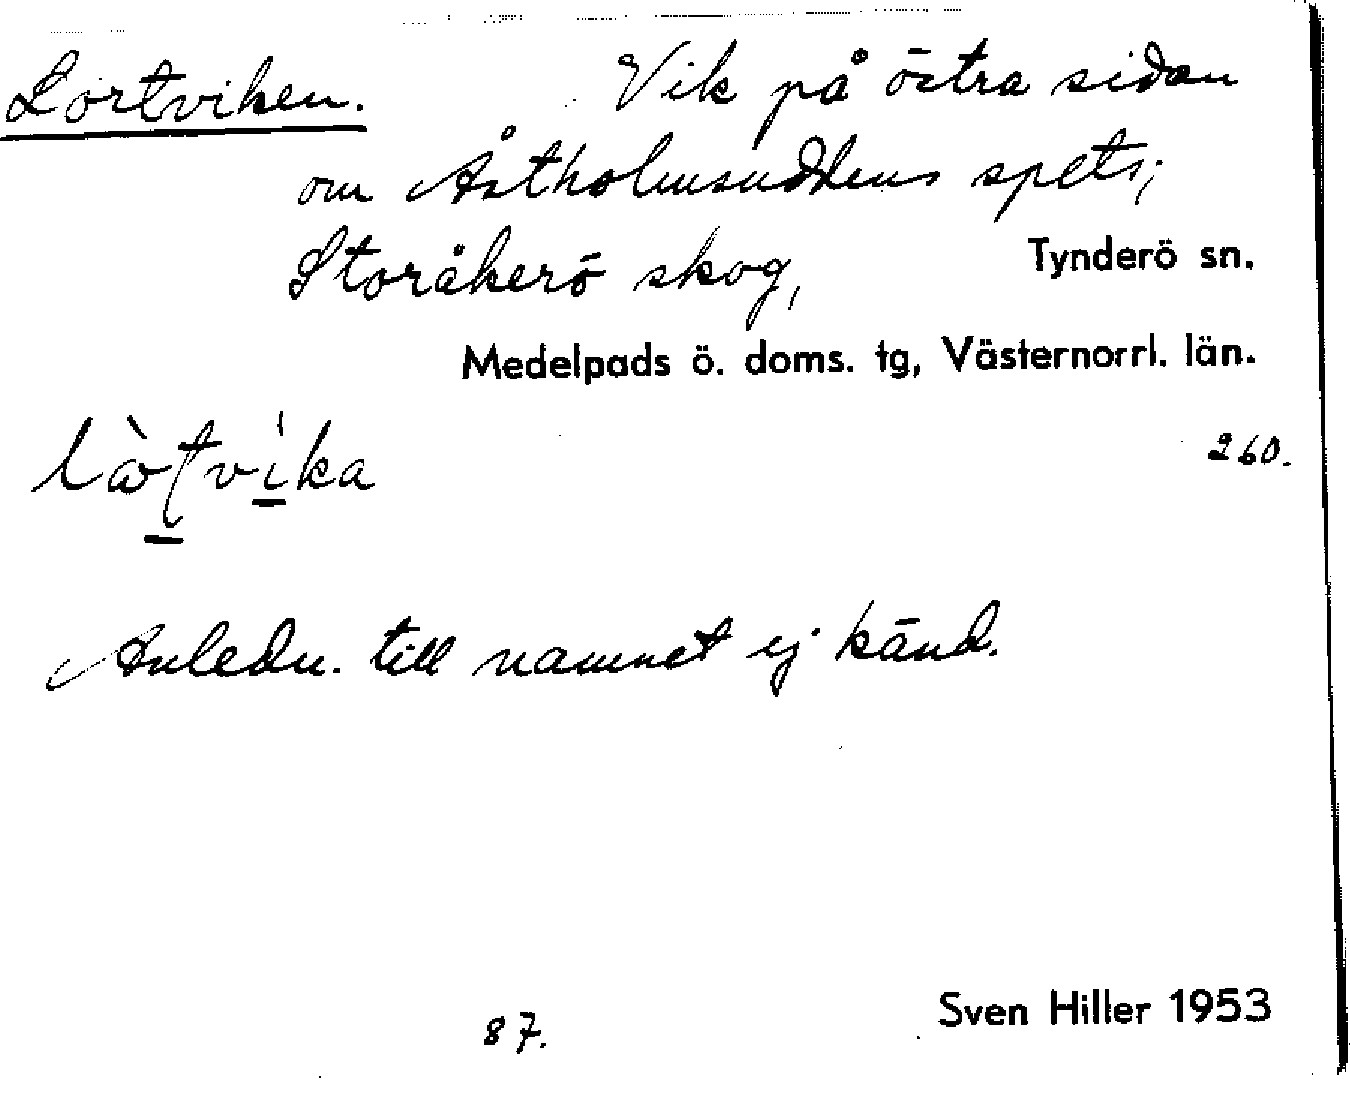 Lörtviken. Vik på östra sidan
om Åstholmsuddens spets;
Storåkerö skog, Tynderö sn.
Medelpads ö. doms. tg, Västernorrl. län.
260.
Anledn. till namnet ej känd.
87.
Sven Hiller 1953